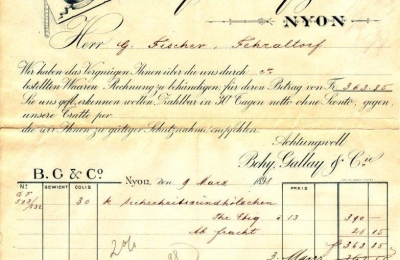 NYON
Herr G. Fischer, Fehraltorf
Wir haben das Vergnügen Ihnen über die uns durch
bestellten Waaren Rechnung zu behändigen, für deren Betrag von Fr. 363.85
Sie uns gefl. erkennen wollen. Zahlbar in 30 Tagen netto ohne Sconto, gegen
unsere Tratte per
die wir Ihnen zu gütiger Schutznahme empfehlen.
Achtungsvoll
Bohy, Gallay & Cie
B. G & Co. Nyon, den 9 März 189
No. GEWICHT COLIS PREIS
30 K Sicherheitszündhölzchen
Ihr Utg 13 390 —
Ab fracht 26 15
363 85
2%